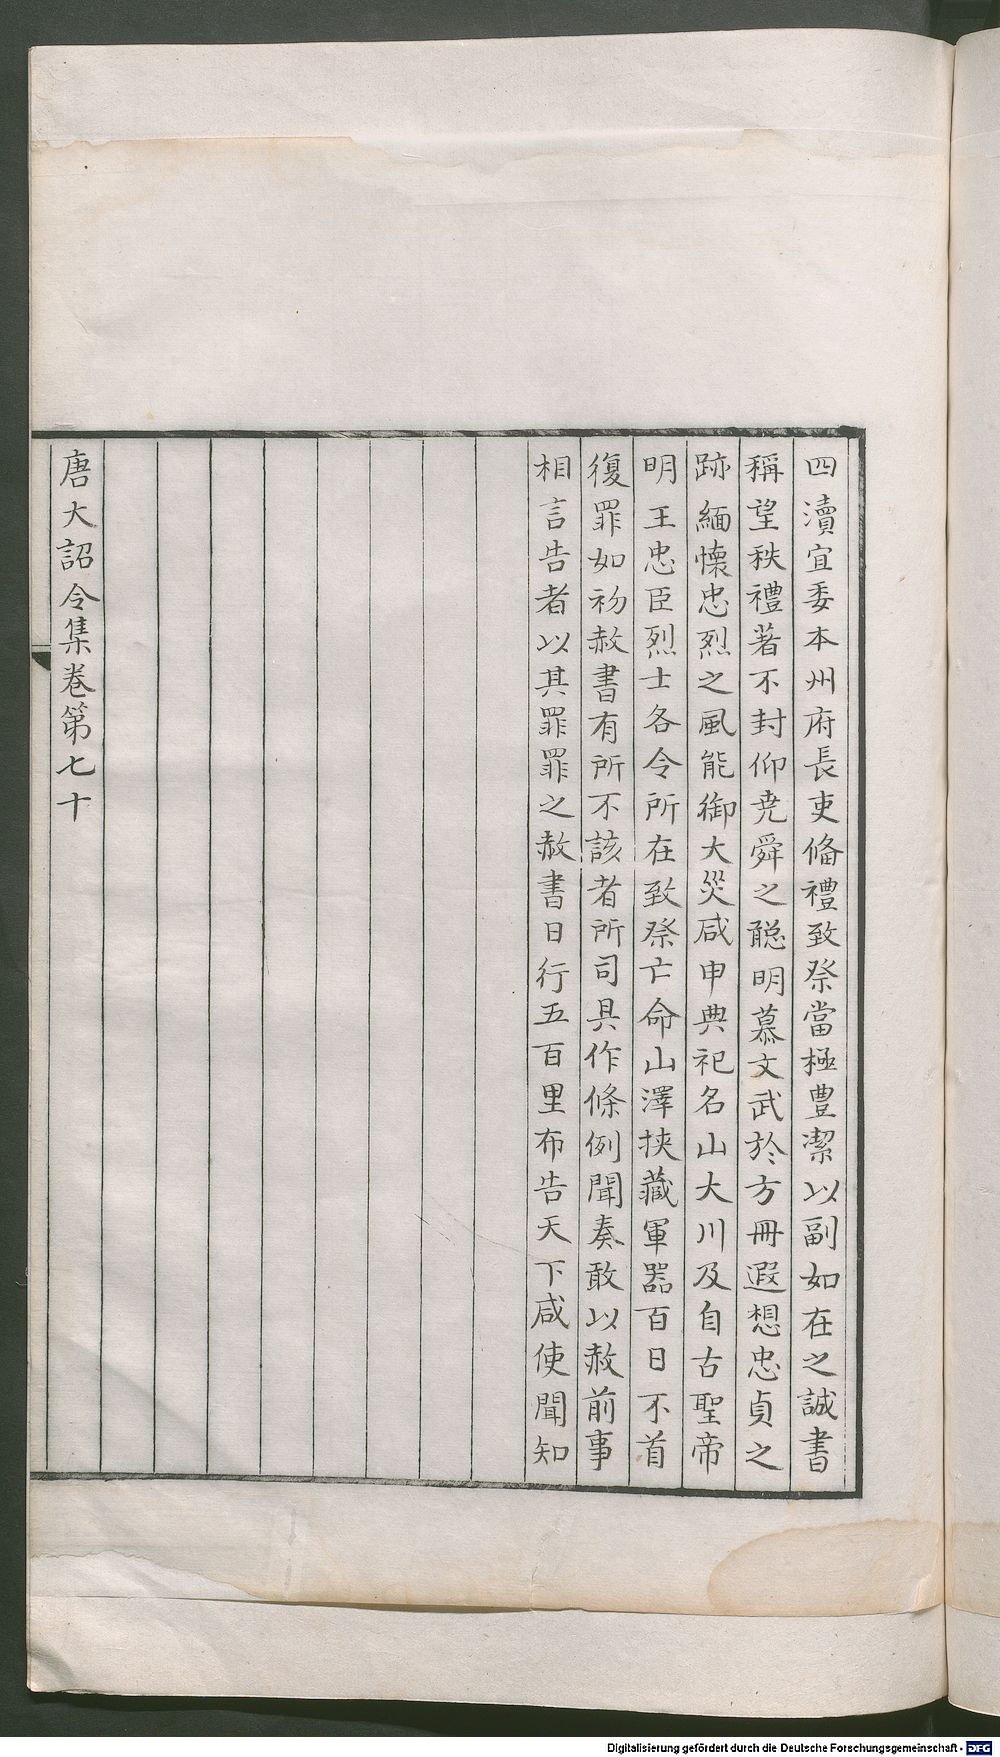 四瀆宜委本州府長吏俻禮致祭當極豊潔以副如在之誠書
稱望秩禮著不封仰尭舜之聦明慕文武於方冊遐想忠貞之
跡緬懷忠烈之風能御大災咸申典祀名山大川及自古聖帝
明王忠臣烈士各令所在致祭亡命山澤挾藏軍器百日不首
復罪如初赦書有所不該者所司具作條例聞奏敢以赦前事
相言告者以其罪罪之赦書日行五百里布告天下咸使聞知
唐大詔令集卷第七十
Digitalisierung gefördert durch die Deutsche Forschungsgemeinschaft - DFG